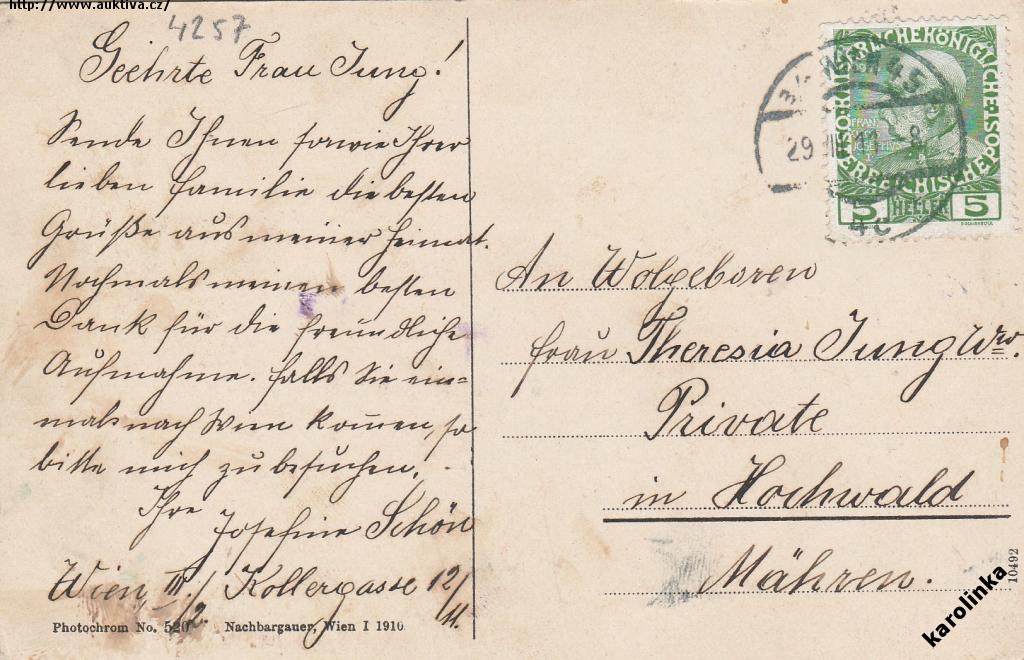 http://www.auktiva.cz/
4257
Geehrte Frau Jung!
Sende Ihnen sowie Ihrer
lieben Familie die besten
Grüße aus meiner Heimat.
Nochmals meinen besten
Dank für die freundliche
Aufnahme. Falls Sie ein=
mal nach Wien kom̄en, so
bitte mich zu besuchen.
Ihre
Josefine Schön
Wien III./2. Kollergasse 12/11.
Photochrom No. 520 Nachbargauer, Wien I 1910
KAISERLICHE KÖNIGLICHE
ÖSTERREICHISCHE POST
FRANZ
JOSEPH
5 HELLER 5
WIEN 45
29
An Wolgeboren
Frau Theresia Jung Ww.
Private
in Hochwald
Mähren.
10492
karolinka